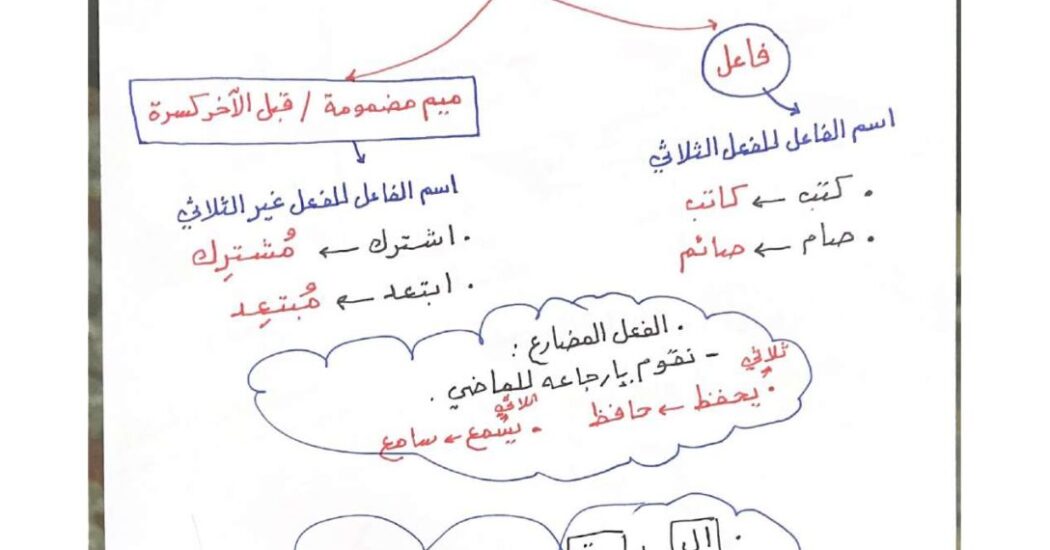 فاعل
اسم الفاعل للفعل الثلاثي
. كتب ← كاتب
. صام ← صائم
ميم مضمومة / قبل الآخر كسرة
اسم الفاعل للفعل غير الثلاثي
. اشترك ← مُشترِك
. ابتعد ← مُبتعِد
. الفعل المضارع :
– نقوم بإرجاعه للماضي .
ثلاثي
. يحفظ ← حافظ
. يسمع ← سامع
. ال